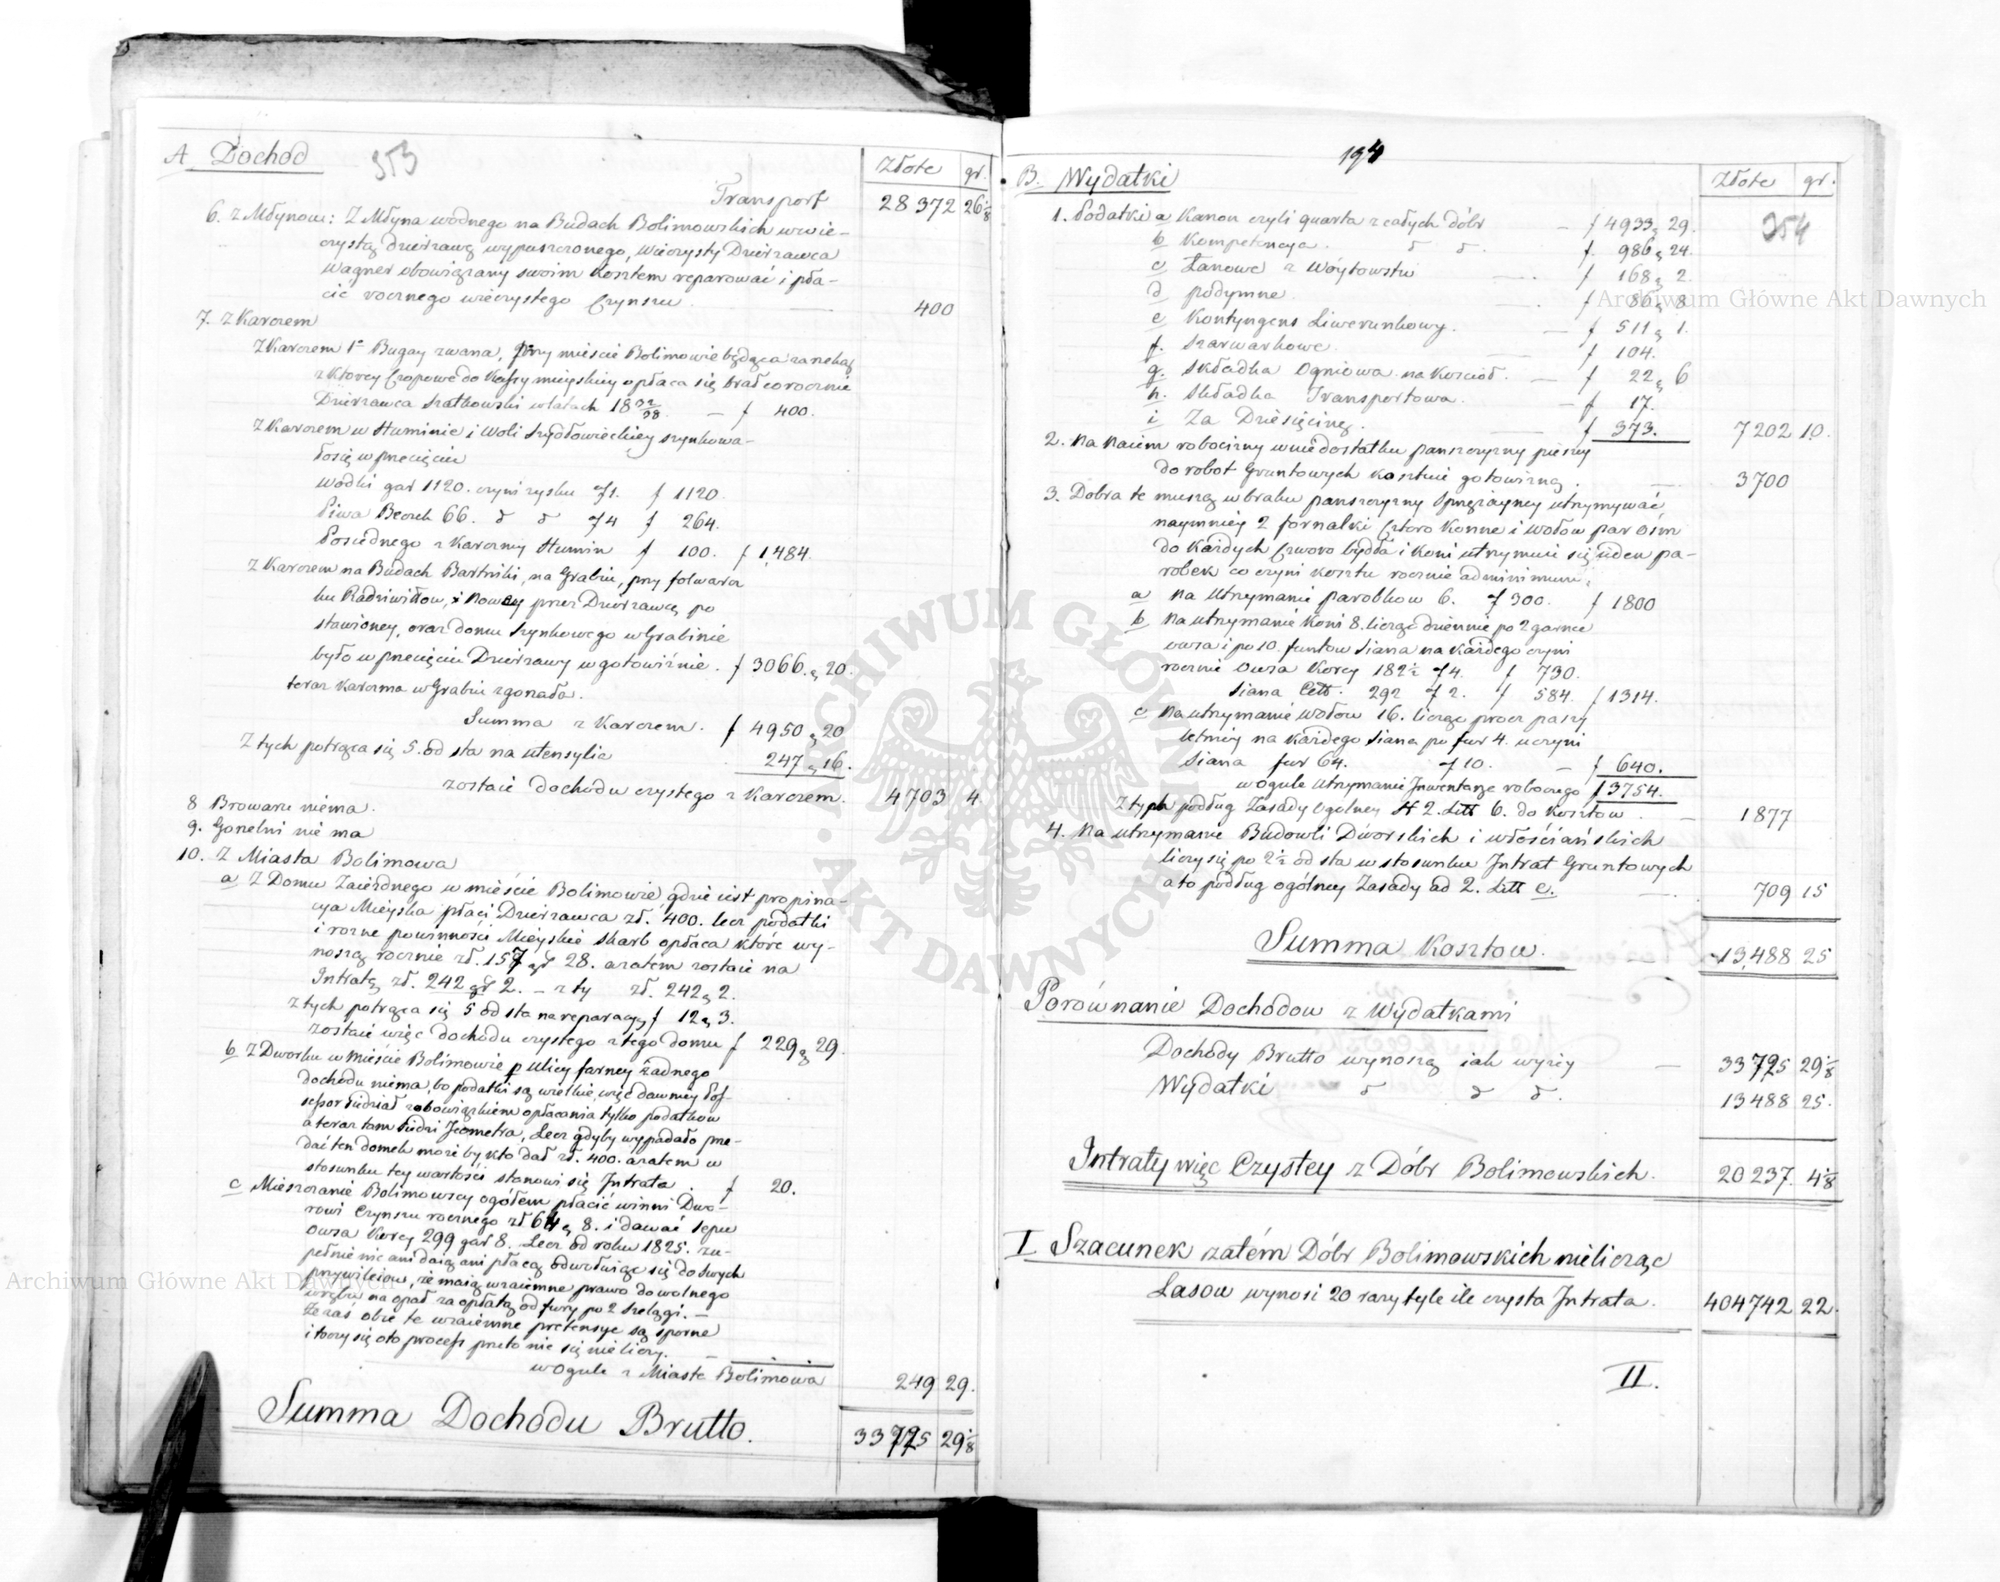 A Dochód 353
Złote gr.
Transport 28372 26 1/8
6. z Młynow: Z Młyna wodnego na Budach Bolimowskich w wie-
czystą dzierzawę wypuszczonego, wieczysty Dzierzawca
Wagner obowiązany swoim kosztem reparować i pła-
cić rocznego wieczystego Czynszu 400
7. z Karczem
Z Karczem 1º Bugay zwana, przy mieście Bolimowie będąca
z ktorey Czopowe do Kassy mieyskiey opłaca się brał corocznie
Dzierzawca Szatkowski w latach 18 – f 400.
Z Karczem w Huminie i Woli Szydłowieckiey szynkowa-
łosię w przecięciu
wodki gar 1120. czyni zysku f 1. f 1120.
Piwa Beczek 66. d d f 4 f 264.
Posiednego z Karczmy Humin f 100. f 1,484.
Z Karczem na Budach Bartniki, na Grabiu, przy folwar
ku Radziwiłłow, i nowey przez Dzierzawcę po
stawioney, oraz domu szynkowego w Grabinie
było w przecięciu Dzierzawy w gotowiźnie. f 3066. g 20.
teraz karczma w Grabiu zgorzała.
Summa z Karczem. f 4950 g 20
Z tych potrąca się 5. od sta na utensylia 247 g 16.
zostaie dochodu czystego z Karczem. 4703 4.
8 Browaru niema.
9. Gorzelni nie ma
10. Z Miasta Bolimowa
a Z Domu Zaiezdnego w mieście Bolimowie, gdzie iest propina-
cya Mieyska płaci Dzierzawca zł. 400. lecz podatki
i rozne powinności Mieyskie Skarb opłaca które wy-
noszą rocznie zł. 157 gr 28. a zatem zostaie na
Intratę zł. 242 gr 2. – z ty zł. 242 g 2.
z tych potrąca się 5 od sta na reparacyę f 12 g 3.
zostaie więc dochodu czystego z tego domu f 229 g 29.
b Z Dworku w mieście Bolimowie p Ulicy farney żadnego
dochodu niema, bo podatki są wielkie, więc dawniey Pos-
sessor siedział z obowiązkiem opłacania tylko podatkow
a teraz tam siedzi Jeometra, Lecz gdyby wypadało prze-
dać ten domek może by kto dał zł. 400. a zatem w
stosunku tey wartości stanowi się Intrata. f 20.
c Mieszczanie Bolimowscy ogółem płacić winni Dwo-
rowi Czynszu rocznego zł 64 g 8. i dawać sepu
Owsa Korcy 299 gar 8. Lecz od roku 1825. zu-
pełnie nic ani daią ani płacą odwołuiąc się do swych
przywileiow, że maią wzaiemne prawo do wolnego
wrębu na opał za opłatą od fury po 2 szelągi. –
Że zaś obie te wzaiemne pretensye są sporne
i toczy się o to process przeto nic się nie liczy.
w ogule z Miasta Bolimowa 249 29.
Summa Dochodu Brutto. 33725 29 1/8
194
B. Wydatki
Złote gr.
354
1. Podatki a Kanon czyli quarta z całych dóbr – f 4933 g 29.
b Kompetencya. d d. f. 986 g 24.
c Łanowe z Wóytowstw f 168 g 2.
d podymne. f 86 g 8
e Kontyngens Liwerunkowy. – f 511 g 1.
f. Szarwarkowe. f 104.
g. Składka Ogniowa na Kościoł. – f 22 g 6
h. Składka Transportowa. – f 17.
i Za Dziesięcinę. f 373. 7202 10.
2. Na naiem robocizny w niedostatku panszczyzny pieszey
do robot Gruntowych kosztuie gotowizną. 3700
3. Dobra te muszą w braku panszczyzny sprzężayney utrzymywać
naymniey 2 fornalki Cztero Konne i wołów par ośm
do każdych Czworo bydła i Koni utrzymuie się ieden pa-
robek co czyni kosztu rocznie adminimum:
a Na utrzymanie parobkow 6. f 300. f 1800
b Na utrzymanie Koni 8. licząc dziennie po 2 garnce
owsa i po 10. funtow siana na każdego czyni
rocznie Owsa Korcy 182½ f 4. f 730.
Siana Cett. 292 f 2. f 584. f 1314.
c Na utrzymanie Wołow 16. licząc procz paszy
letniey na każdego siana po fur 4. uczyni
Siana fur 64. f 10. – f 640.
w ogule utrzymanie Inwentarza roboczego f 3754.
z tych podług Zasady Ogolney N 2. Litt 6. do Kosztow. – 1877
4. Na utrzymanie Budowli Dworskich i włościańskich
liczy się po 2½ od sta w stosunku Intrat Gruntowych
a to podług ogólney Zasady ad 2. Litt e. – 709 15
Summa Kosztow. 13,488 25
Porównanie Dochodow z Wydatkami
Dochody Brutto wynoszą iak wyżey – 33725 29 1/8
Wydatki d d d. 13488 25.
Intraty więc Czystey z Dóbr Bolimowskich. 20237. 4 1/8
I Szacunek zatém Dóbr Bolimowskich nielicząc
Lasow wynosi 20 razy tyle ile czysta Intrata. 404742 22.
II.
Archiwum Główne Akt Dawnych
Archiwum Główne Akt Dawnych
ARCHIWUM GŁÓWNE AKT DAWNYCH